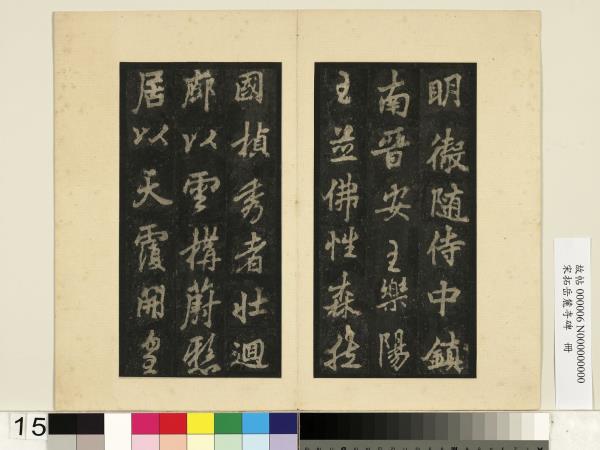 明微隨侍中鎮
南晉安王樂陽
王並佛性森然
國楨秀者壯迴
廊以雲構蔚懸
居以天霞開皇
故帖 000006 N000000000
宋拓岳麓寺碑 冊
15